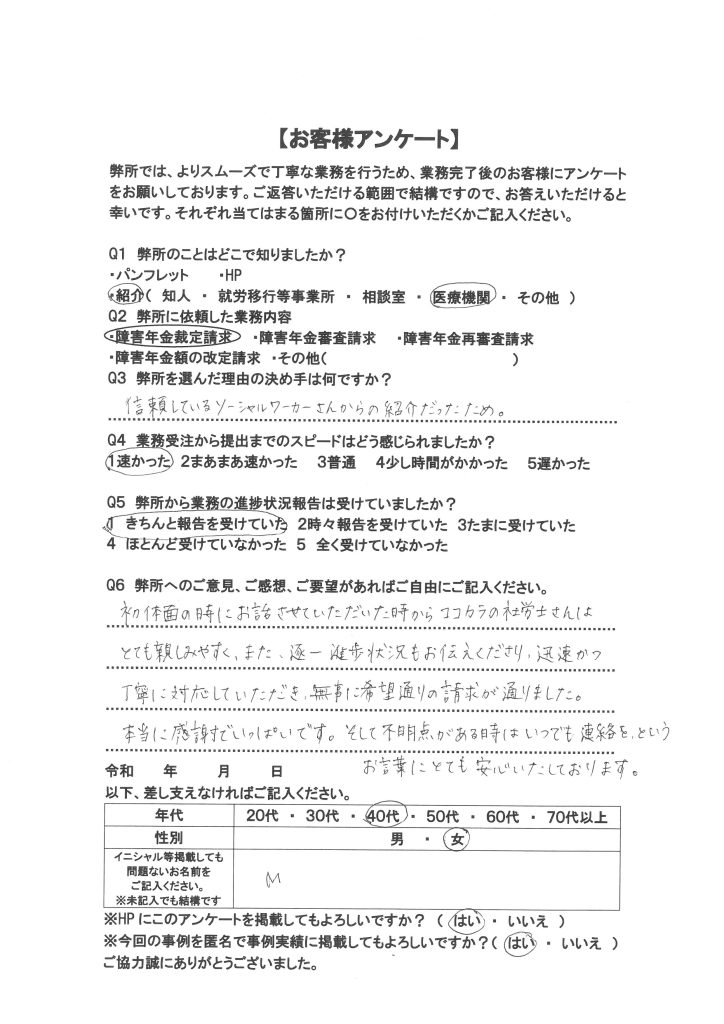 【お客様アンケート】
弊所では、よりスムーズで丁寧な業務を行うため、業務完了後のお客様にアンケート
をお願いしております。ご返答いただける範囲で結構ですので、お答えいただけると
幸いです。それぞれ当てはまる箇所に〇をお付けいただくかご記入ください。
Q1 弊所のことはどこで知りましたか？
・パンフレット ・HP
・紹介( 知人 ・ 就労移行等事業所 ・ 相談室 ・ 医療機関 ・ その他 )
Q2 弊所に依頼した業務内容
・障害年金裁定請求 ・障害年金審査請求 ・障害年金再審査請求
・障害年金額の改定請求 ・その他( )
Q3 弊所を選んだ理由の決め手は何ですか？
信頼しているソーシャルワーカーさんからの紹介だったため。
Q4 業務受注から提出までのスピードはどう感じられましたか？
1速かった 2まあまあ速かった 3普通 4少し時間がかかった 5遅かった
Q5 弊所から業務の進捗状況報告は受けていましたか？
1 きちんと報告を受けていた 2時々報告を受けていた 3たまに受けていた
4 ほとんど受けていなかった 5 全く受けていなかった
Q6 弊所へのご意見、ご感想、ご要望があればご自由にご記入ください。
初体面の時にお話させていただいた時からココカラの社労士さんは
とても親しみやすく、また、逐一進歩状況もお伝えくださり、迅速かつ
丁寧に対応していただき、無事に希望通りの請求が通りました。
本当に感謝でいっぱいです。そして不明点がある時はいつでも連絡を、という
お言葉にとても安心いたしております。
令和 年 月 日
以下、差し支えなければご記入ください。
年代 20代 ・ 30代 ・ 40代 ・ 50代 ・ 60代 ・ 70代以上
性別 男 ・ 女
イニシャル等掲載しても
問題ないお名前を
ご記入ください。
※未記入でも結構です
M
※HPにこのアンケートを掲載してもよろしいですか？ ( はい ・ いいえ )
※今回の事例を匿名で事例実績に掲載してもよろしいですか？( はい ・ いいえ )
ご協力誠にありがとうございました。